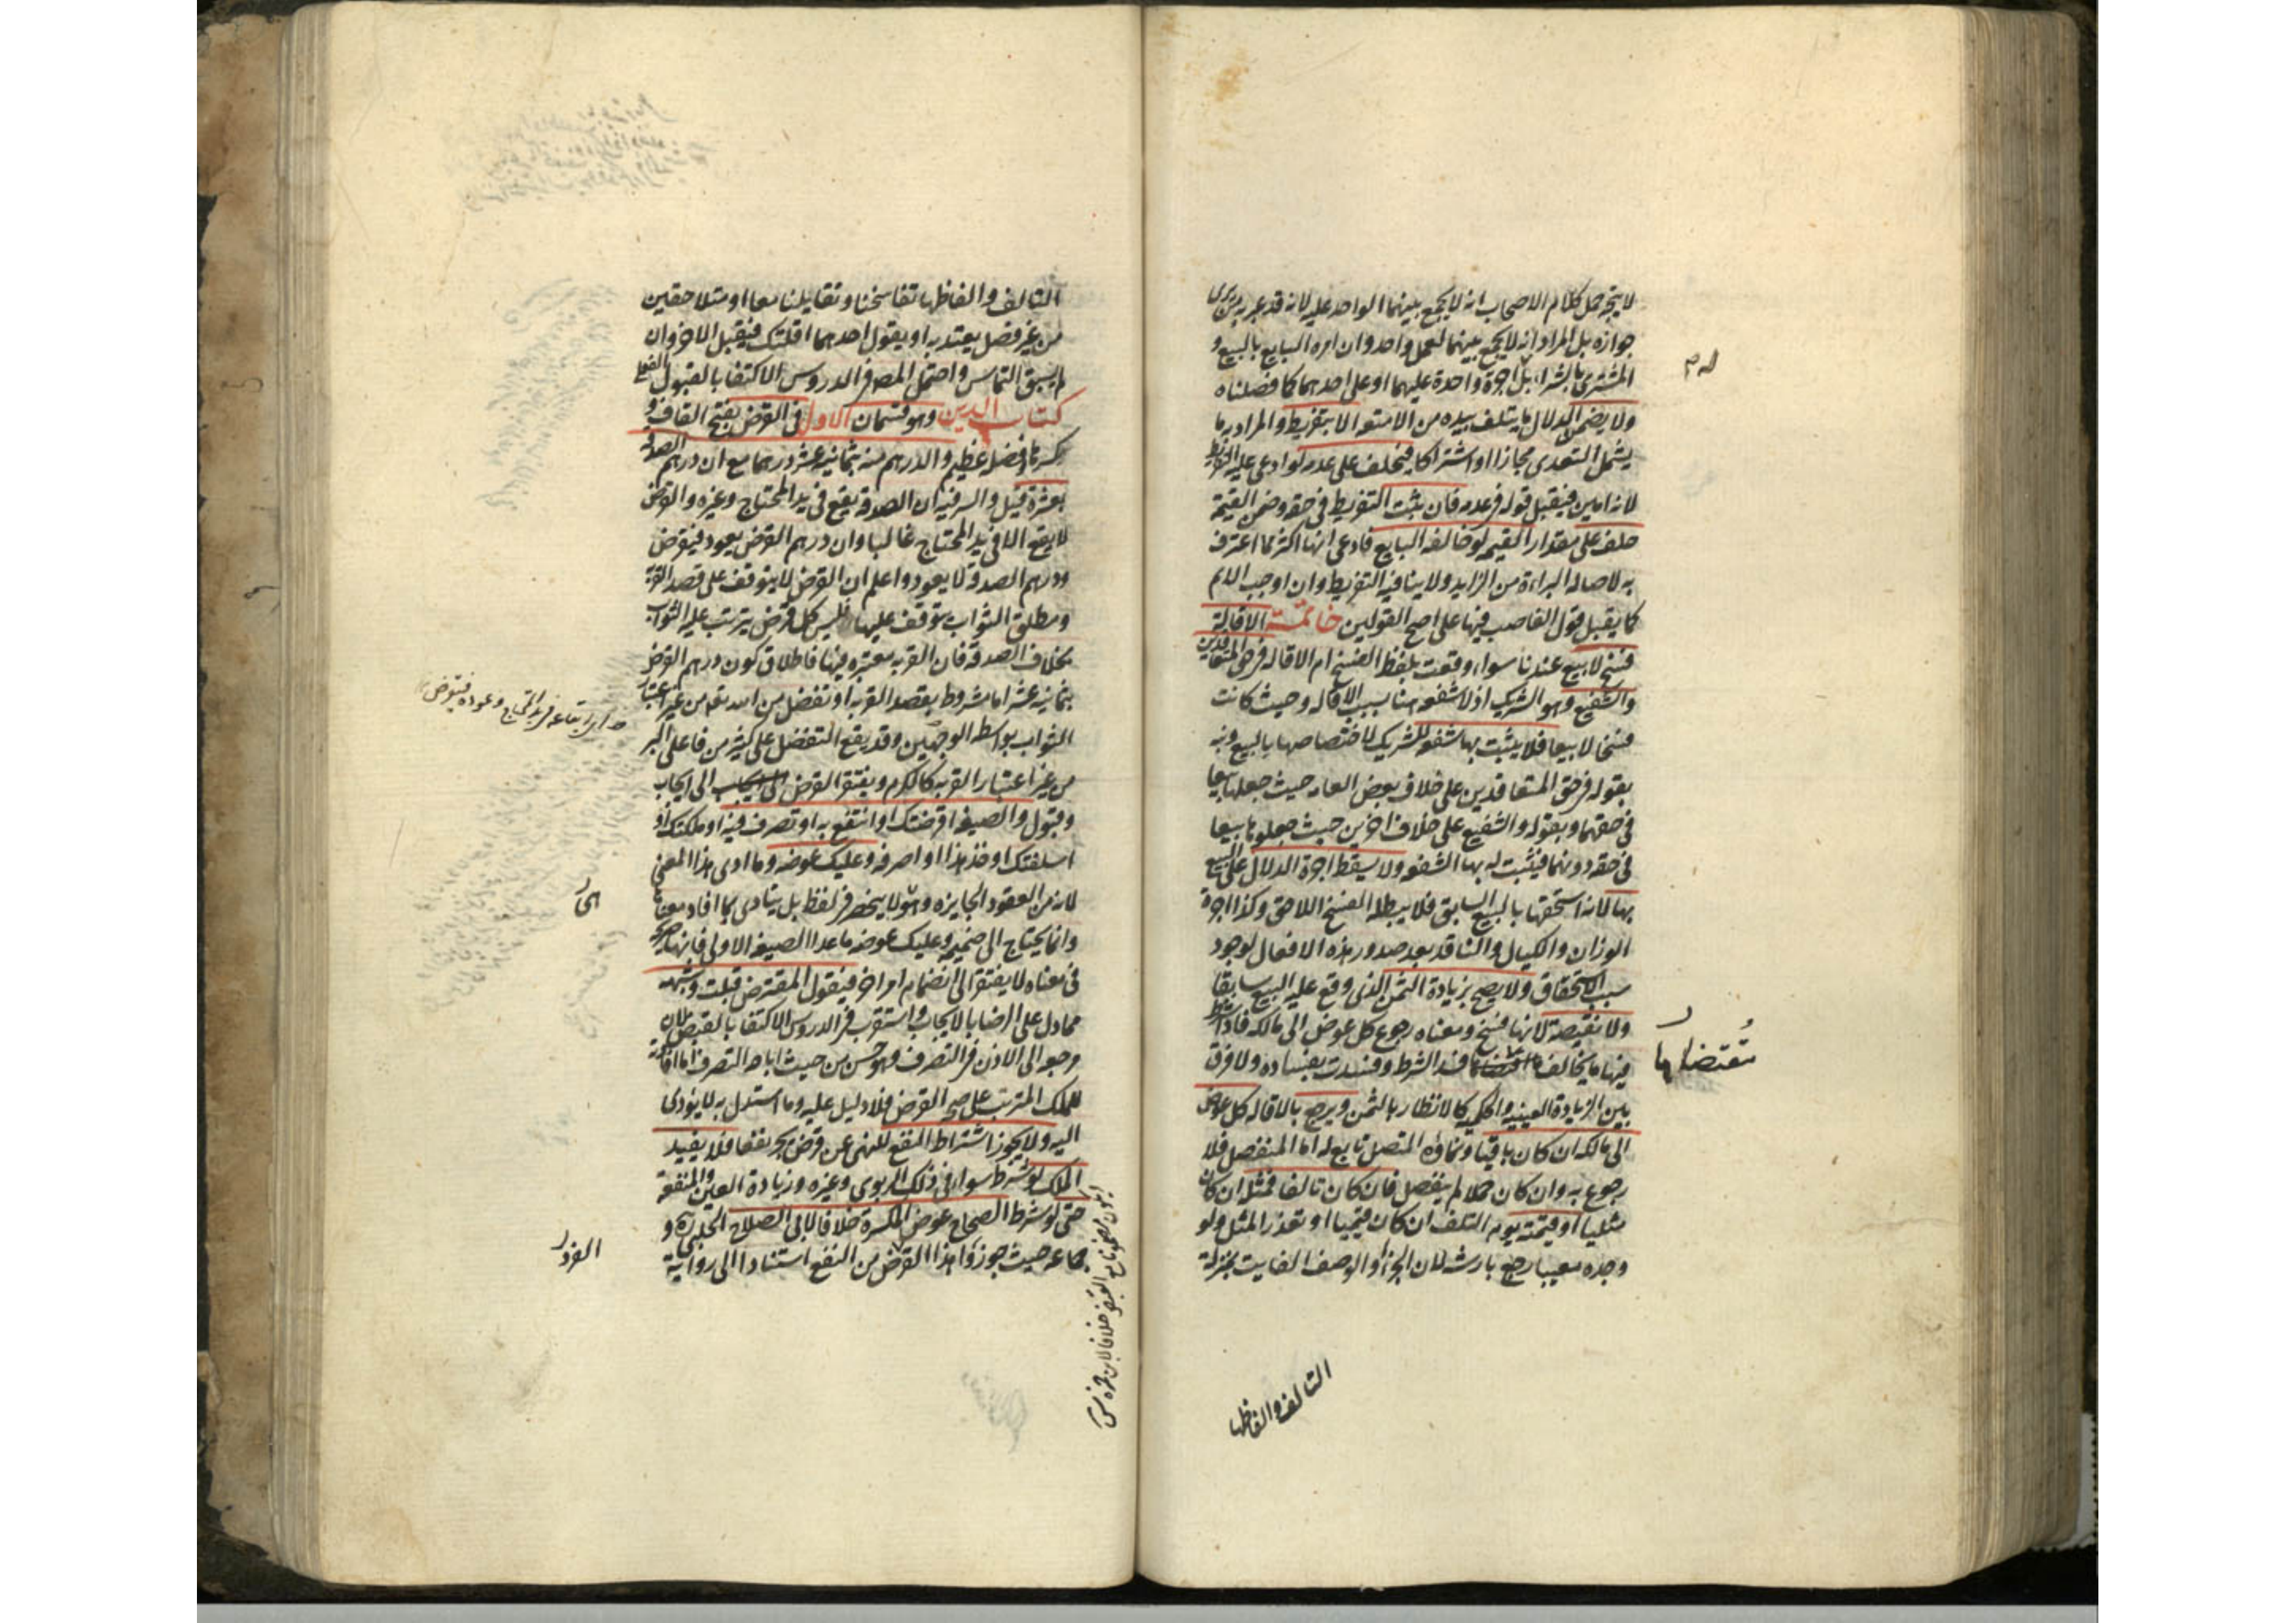 لا يتجه حمل كلام الاصحاب انه لا يجمع بينهما الواحد عليه لانه قد عبر به من يرى
جوازه بل المراد انه لا يجمع بينهما لعمل واحد وان امره البايع بالبيع و
المشترى بالشراء بل اجرة واحدة عليهما او على احدهما كما فصلناه
ولا يضمن الدلال ما يتلف بيده من الامتعه الا بتفريط والمراد به ما
يشمل التعدى مجازا او اشتراكا فيحلف على عدمه لو ادعى عليه التفريط
لانه امين فيقبل قوله فى عدمه فان ثبت التفريط فى حقه وضمن القيمة
حلف على مقدار القيمه لو خالفه البايع فادعى انها اكثر مما اعترف
به لاصاله البراءة من الزايد ولا ينافيه التفريط وان اوجب الاثم
كما يقبل قول الغاصب فيها على اصح القولين خاتمة الاقالة
فسخ لا بيع عندنا سواء وقعت بلفظ الفسخ ام الاقاله فى حق المتعاقدين
والشفيع وهو الشريك اذ لا شفعه هنا بسبب الاقاله وحيث كانت
فسخا لا بيعا فلا يثبت بها شفعه للشريك لاختصاصها بالبيع ونبه
بقوله فى حق المتعاقدين على خلاف بعض العامه حيث جعلها بيعا
فى حقهما وبقوله والشفيع على خلاف اخرين حيث جعلوها بيعا
فى حقه دونهما فيثبت له بها الشفعه ولا يسقط اجرة الدلال على البيع
بها لانه استحقها بالبيع السابق فلا يبطله الفسخ اللاحق وكذا اجرة
الوزان والكيال والناقد بعد صدور هذه الافعال لوجود
سبب الاستحقاق ولا يصح بزيادة الثمن الذى وقع عليه البيع سابقا
ولا نقيصة لانها فسخ ومعناه رجوع كل عوض الى مالكه فاذا شرط
فيها ما يخالف مقتضاها فسد الشرط وفسدت بفساده ولا فرق
مقتضاها
بين الزيادة العينيه والحكميه كالانظار بالثمن ويرجع بالاقاله كل عوض
الى مالكه ان كان باقيا ونماؤه المتصل تابع له اما المنفصل فلا
رجوع به وان كان حملا لم ينفصل فان كان تالفا فمثله ان كان
مثليا او قيمته يوم التلف ان كان قيميا او تعذر المثل ولو
وجده معيبا رجع بارشه لان الجزء او الوصف الفايت بمنزلة
التالف والفاظها
التالف والفاظها تفاسخنا وتقايلنا معا او متلاحقين
من غير فصل يعتد به او يقول احدهما اقلتك فيقبل الاخر وان
لم يسبق التماس واحتمل المصنف فى الدروس الاكتفا بالقبول الفعلى
كتاب الدين وهو قسمان الاول فى القرض بفتح القاف و
كسرها وفضله عظيم والدرهم منه بثمانية عشر درهما مع ان درهم الصدقة
بعشرة قيل والسر فيه ان الصدقة يقع فى يد المحتاج وغيره والقرض
لا يقع الا فى يد المحتاج غالبا وان درهم القرض يعود فيقرض
ودرهم الصدقة لا يعود واعلم ان القرض لا يتوقف على قصد القربة
ومطلق الثواب يتوقف عليها فليس كل قرض يترتب عليه الثواب
بخلاف الصدقة فان القربه معتبره فيها فاطلاق كون درهم القرض
بثمانية عشر اما مشروط بقصد القربه او تفضل من الله تعالى من غير اعتبار
الثواب بواسطه الوجهين وقد يقع التفضل على كثير من فاعلى البر
من غير اعتبار القربه كالكرم ويفتقر القرض الى ايجاب
وقبول والصيغه اقرضتك او انتفع به او تصرف فيه او ملكتك او
اسلفتك او خذ هذا او اصرفه وعليك عوضه وما ادى هذا المعنى
لانه من العقود الجايزه وهو لا ينحصر فى لفظ بل يتادى بما افاد معناها
وانما يحتاج الى ضميمه وعليك عوضه ما عدا الصيغه الاولى فانها صريحة
فى معناه لا يفتقر الى انضمام امر اخر فيقول المقترض قبلت وشبهه
مما دل على الرضا بالايجاب واستقرب فى الدروس الاكتفا بالقبض لان
مرجعه الى الاذن فى التصرف وهو حسن من حيث اباحه التصرف اما افادته
للملك المترتب على صحه القرض فلا دليل عليه وما استدل به لا يؤدى
اليه ولا يجوز اشتراط النفع للنهى عن قرض يجر نفعا فلا يفيد
الملك لو شرط سواء فى ذلك الربوى وغيره وزيادة العين والمنفعة
حتى لو شرط الصحاح عوض المكسرة خلافا لابى الصلاح الحلبى ره و
جماعه حيث جوزوا هذا القرض من النفع استنادا الى رواية